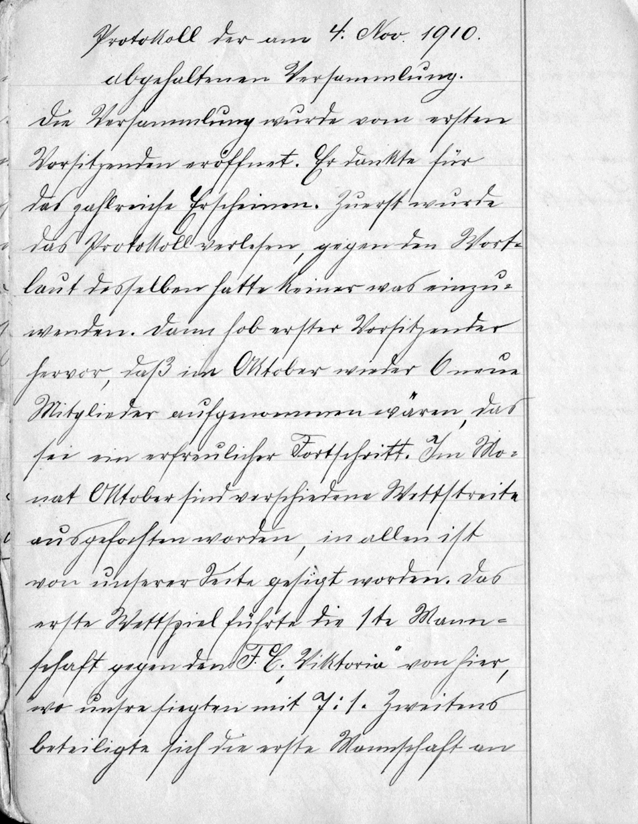 Protokoll der am 4. Nov. 1910.
abgehaltenen Versammlung.
Die Versammlung wurde vom ersten
Vorsitzenden eröffnet. Er dankte für
das zahlreiche Erscheinen. Zuerst wurde
das Protokoll verlesen, gegen den Wort-
laut desselben hatte keiner was einzu-
wenden. Dann hob erster Vorsitzender
hervor, daß im Oktober wieder 6 neue
Mitglieder aufgenommen wären, das
sei ein erfreulicher Fortschritt. Im Mo-
nat Oktober sind verschiedene Wettstreite
ausgefochten worden, in allen ist
von unserer Seite gesigt worden. Das
erste Wettspiel führte die 1te Mann-
schaft gegen den F. C. Viktoria" von hier,
wo unsre siegten mit 7:1. Zweitens
beteiligte sich die erste Mannschaft an